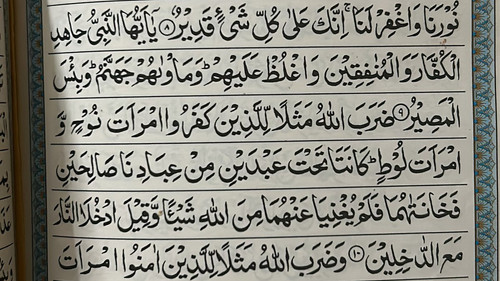 نُوْرَنَا وَاغْفِرْ لَنَا ۚ اِنَّكَ عَلٰى كُلِّ شَیْءٍ قَدِیْرٌ ﴿۸﴾ یٰۤاَیُّهَا النَّبِیُّ جَاهِدِ
الْكُفَّارَ وَالْمُنٰفِقِیْنَ وَاغْلُظْ عَلَیْهِمْ ؕ وَمَاْوٰىهُمْ جَهَنَّمُ ؕ وَبِئْسَ
الْمَصِیْرُ ﴿۹﴾ ضَرَبَ اللّٰهُ مَثَلًا لِّلَّذِیْنَ كَفَرُوا امْرَاَتَ نُوْحٍ وَّ
امْرَاَتَ لُوْطٍ ؕ كَانَتَا تَحْتَ عَبْدَیْنِ مِنْ عِبَادِنَا صَالِحَیْنِ
فَخَانَتٰهُمَا فَلَمْ یُغْنِیَا عَنْهُمَا مِنَ اللّٰهِ شَیْـًٔا وَّقِیْلَ ادْخُلَا النَّارَ
مَعَ الدّٰخِلِیْنَ ﴿۱۰﴾ وَضَرَبَ اللّٰهُ مَثَلًا لِّلَّذِیْنَ اٰمَنُوا امْرَاَتَ